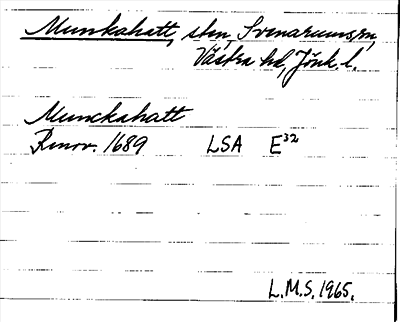 Munkahatt, sten, Svenarums sn,
Västra hd, Jönk. l.
Munckahatt
Renov. 1689 LSA E³²
L.M.S. 1965.